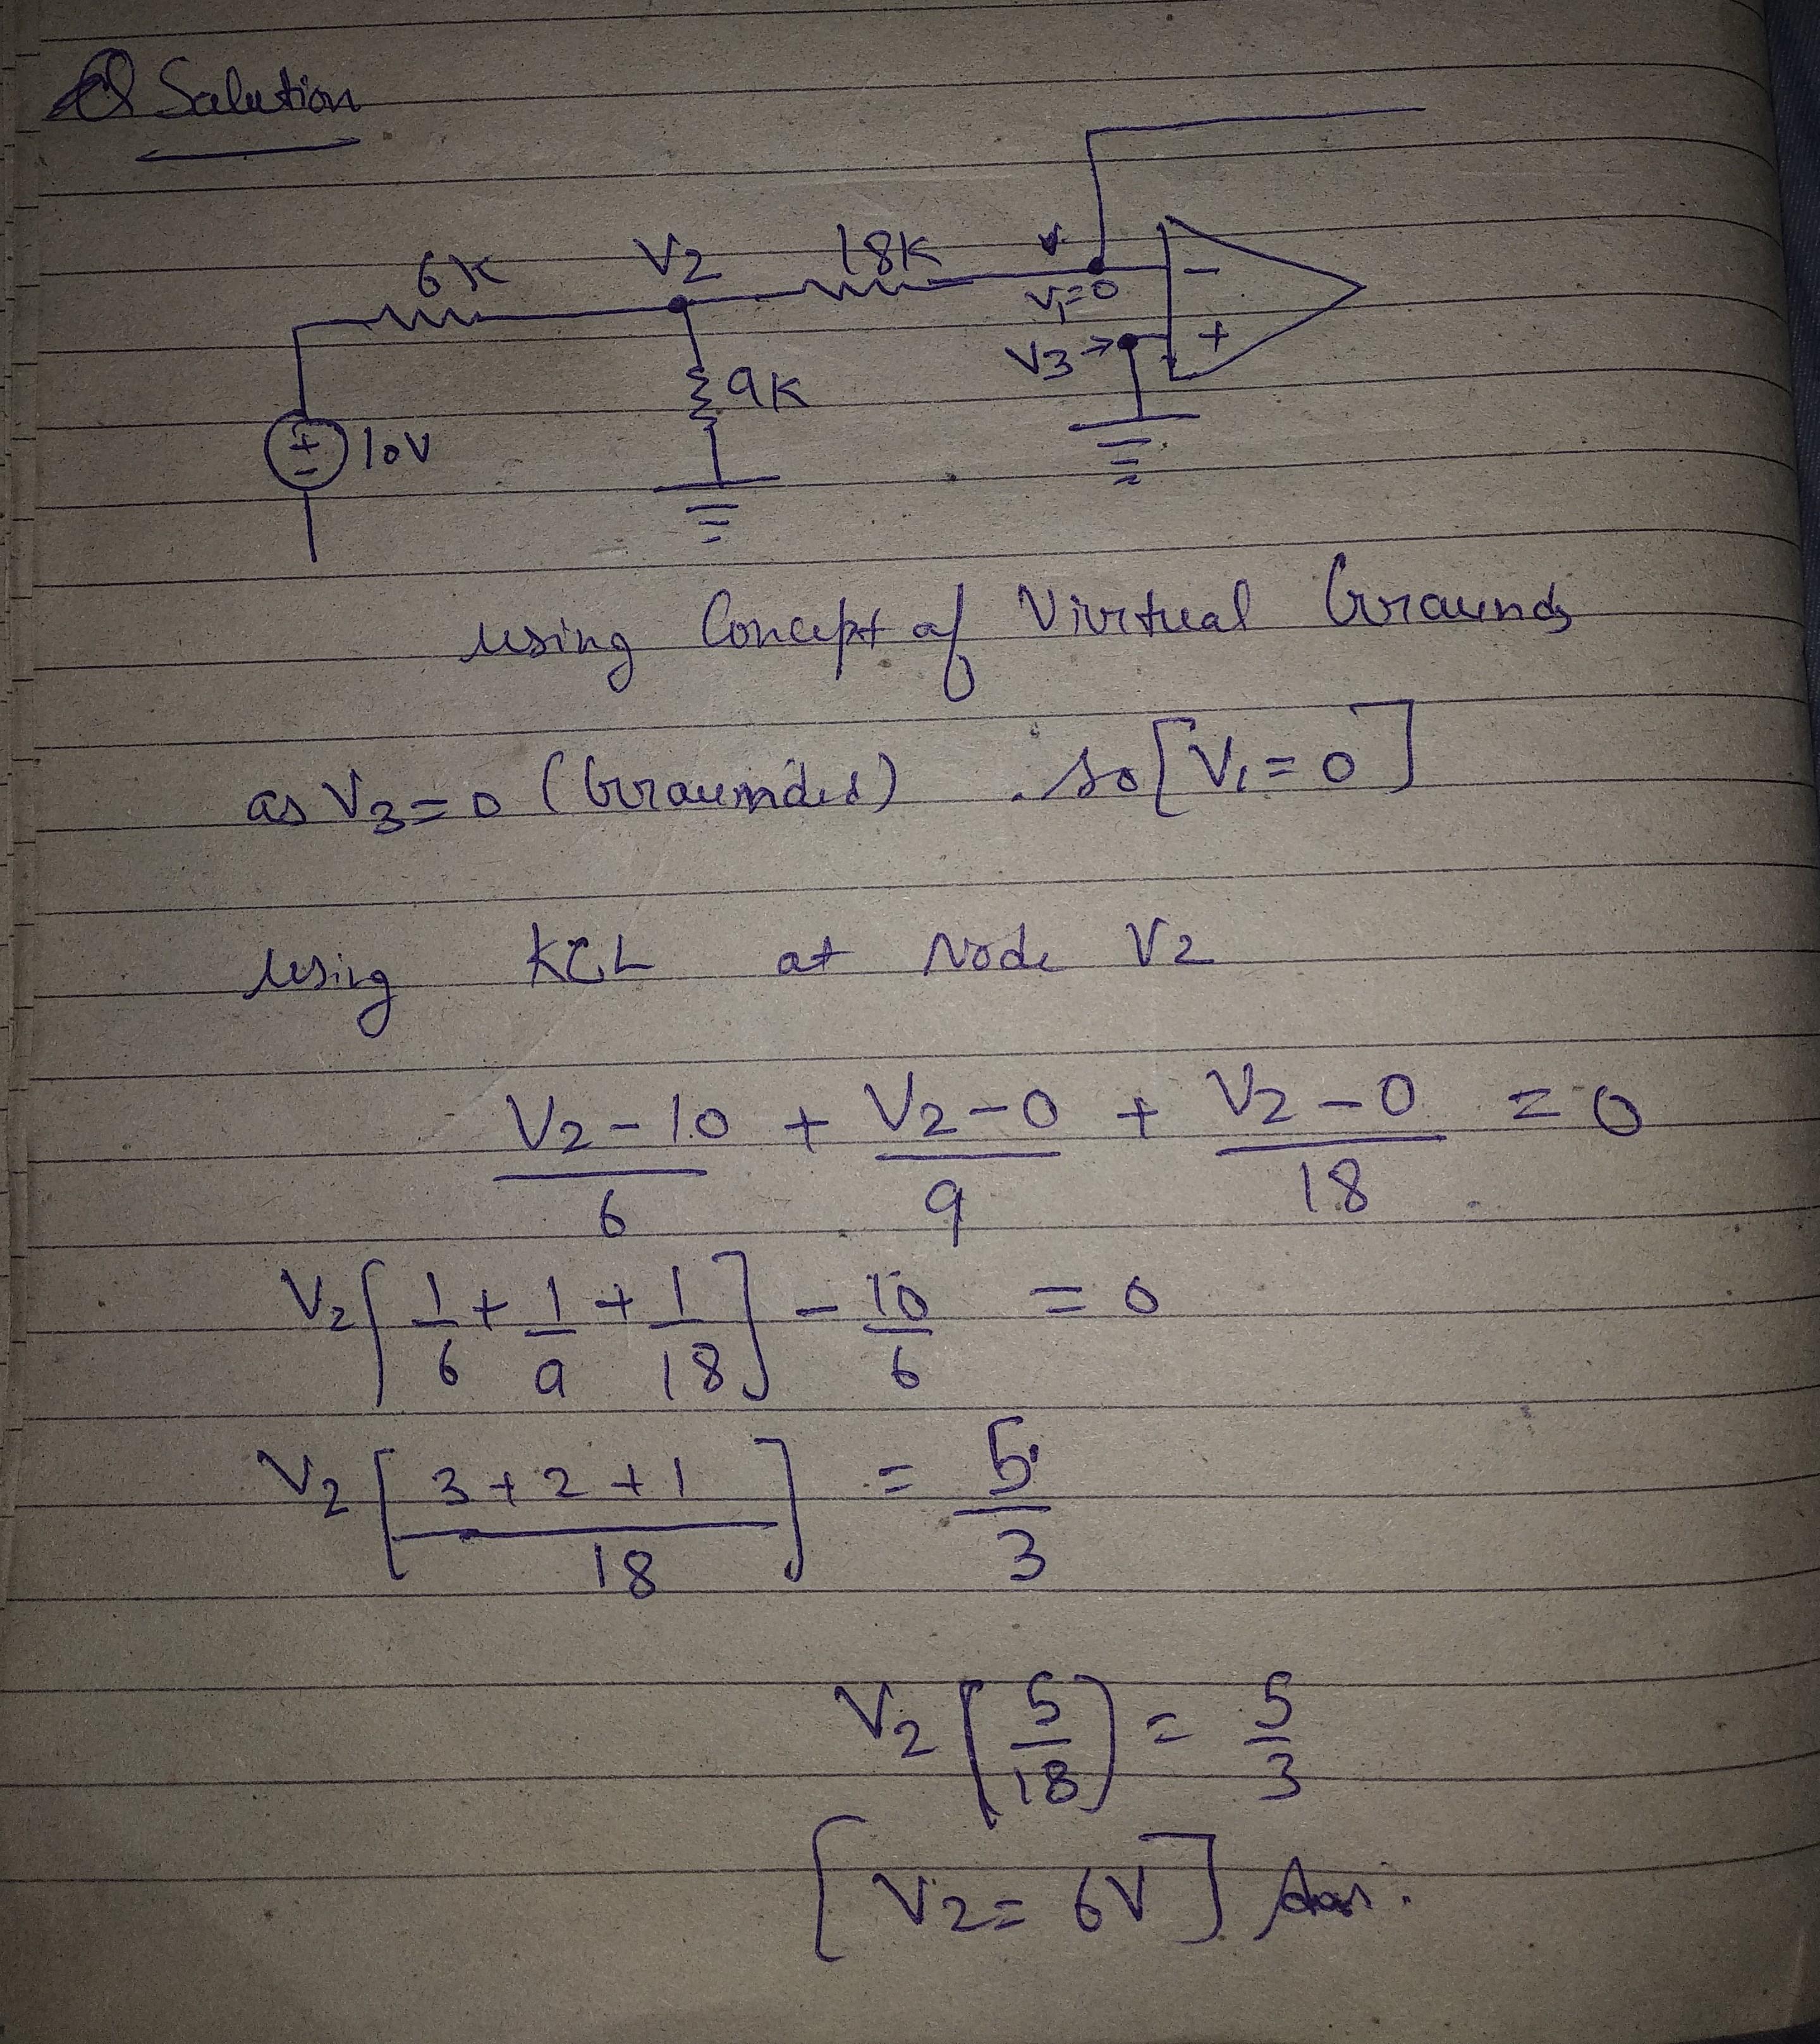 Q Solution
6K V2 18K V1=0 −
V3→ +
9K
+
− 10V
using Concept of Virtual Grounds
as V3=0 (Grounded) . so [V1=0]
using KCL at Node V2
(V2-10)/6 + (V2-0)/9 + (V2-0)/18 = 0
V2[1/6 + 1/9 + 1/18] - 10/6 = 0
V2[(3+2+1)/18] = 5/3
V2(5/18) = 5/3
[V2= 6V] Ans.